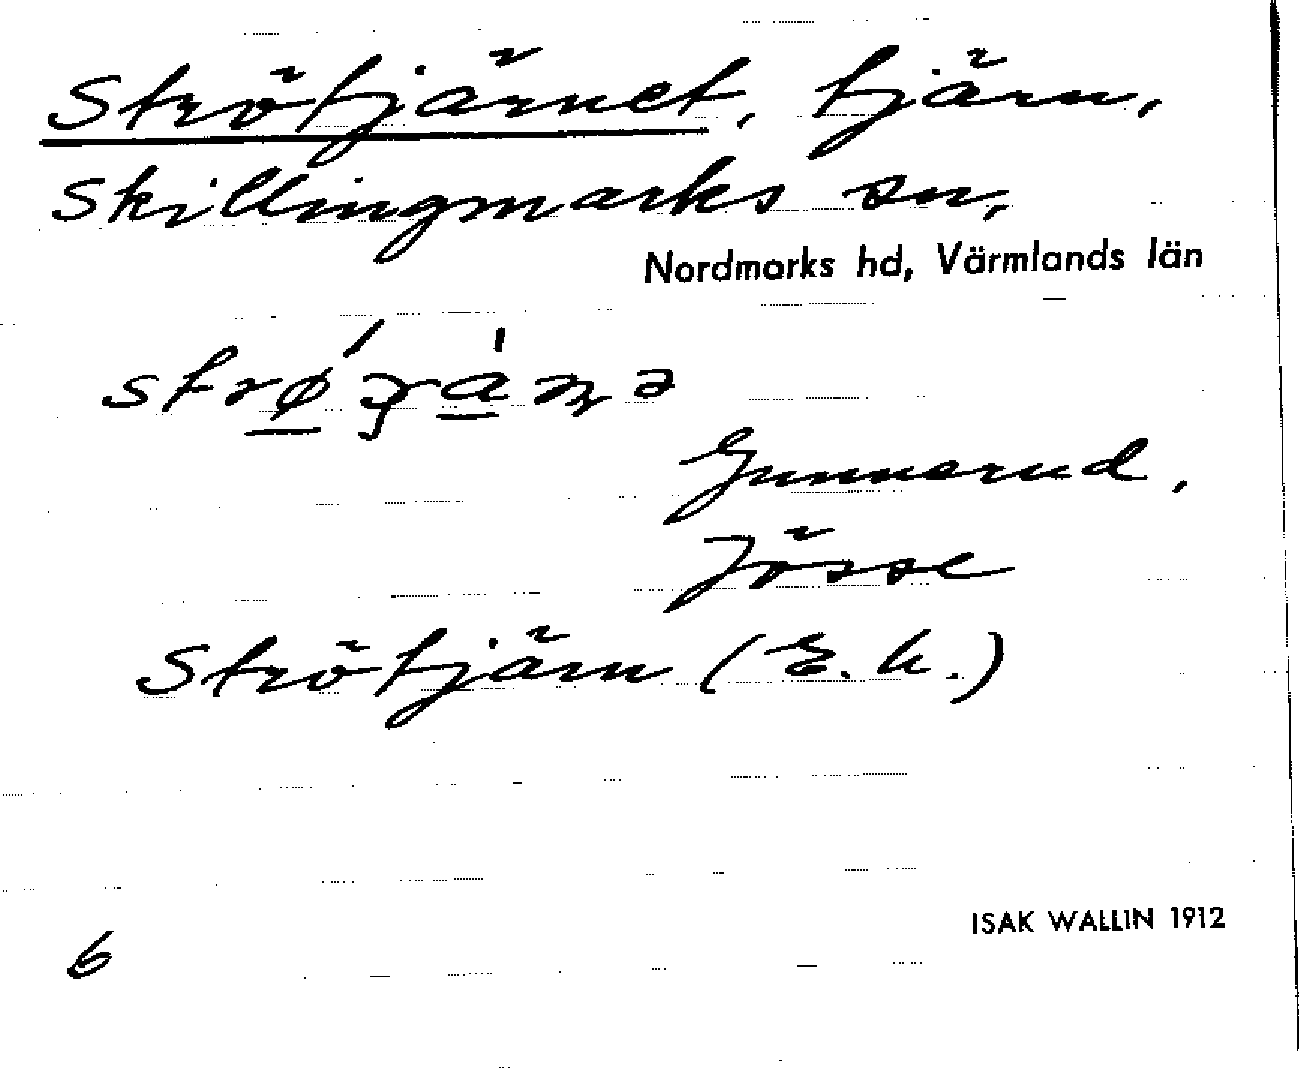 Strötjärnet, tjärn,
Skillingmarks sn,
Nordmarks hd, Värmlands län
Gunnerud,
Jösse
Strötjärn (E.k.)
ISAK WALLIN 1912
6